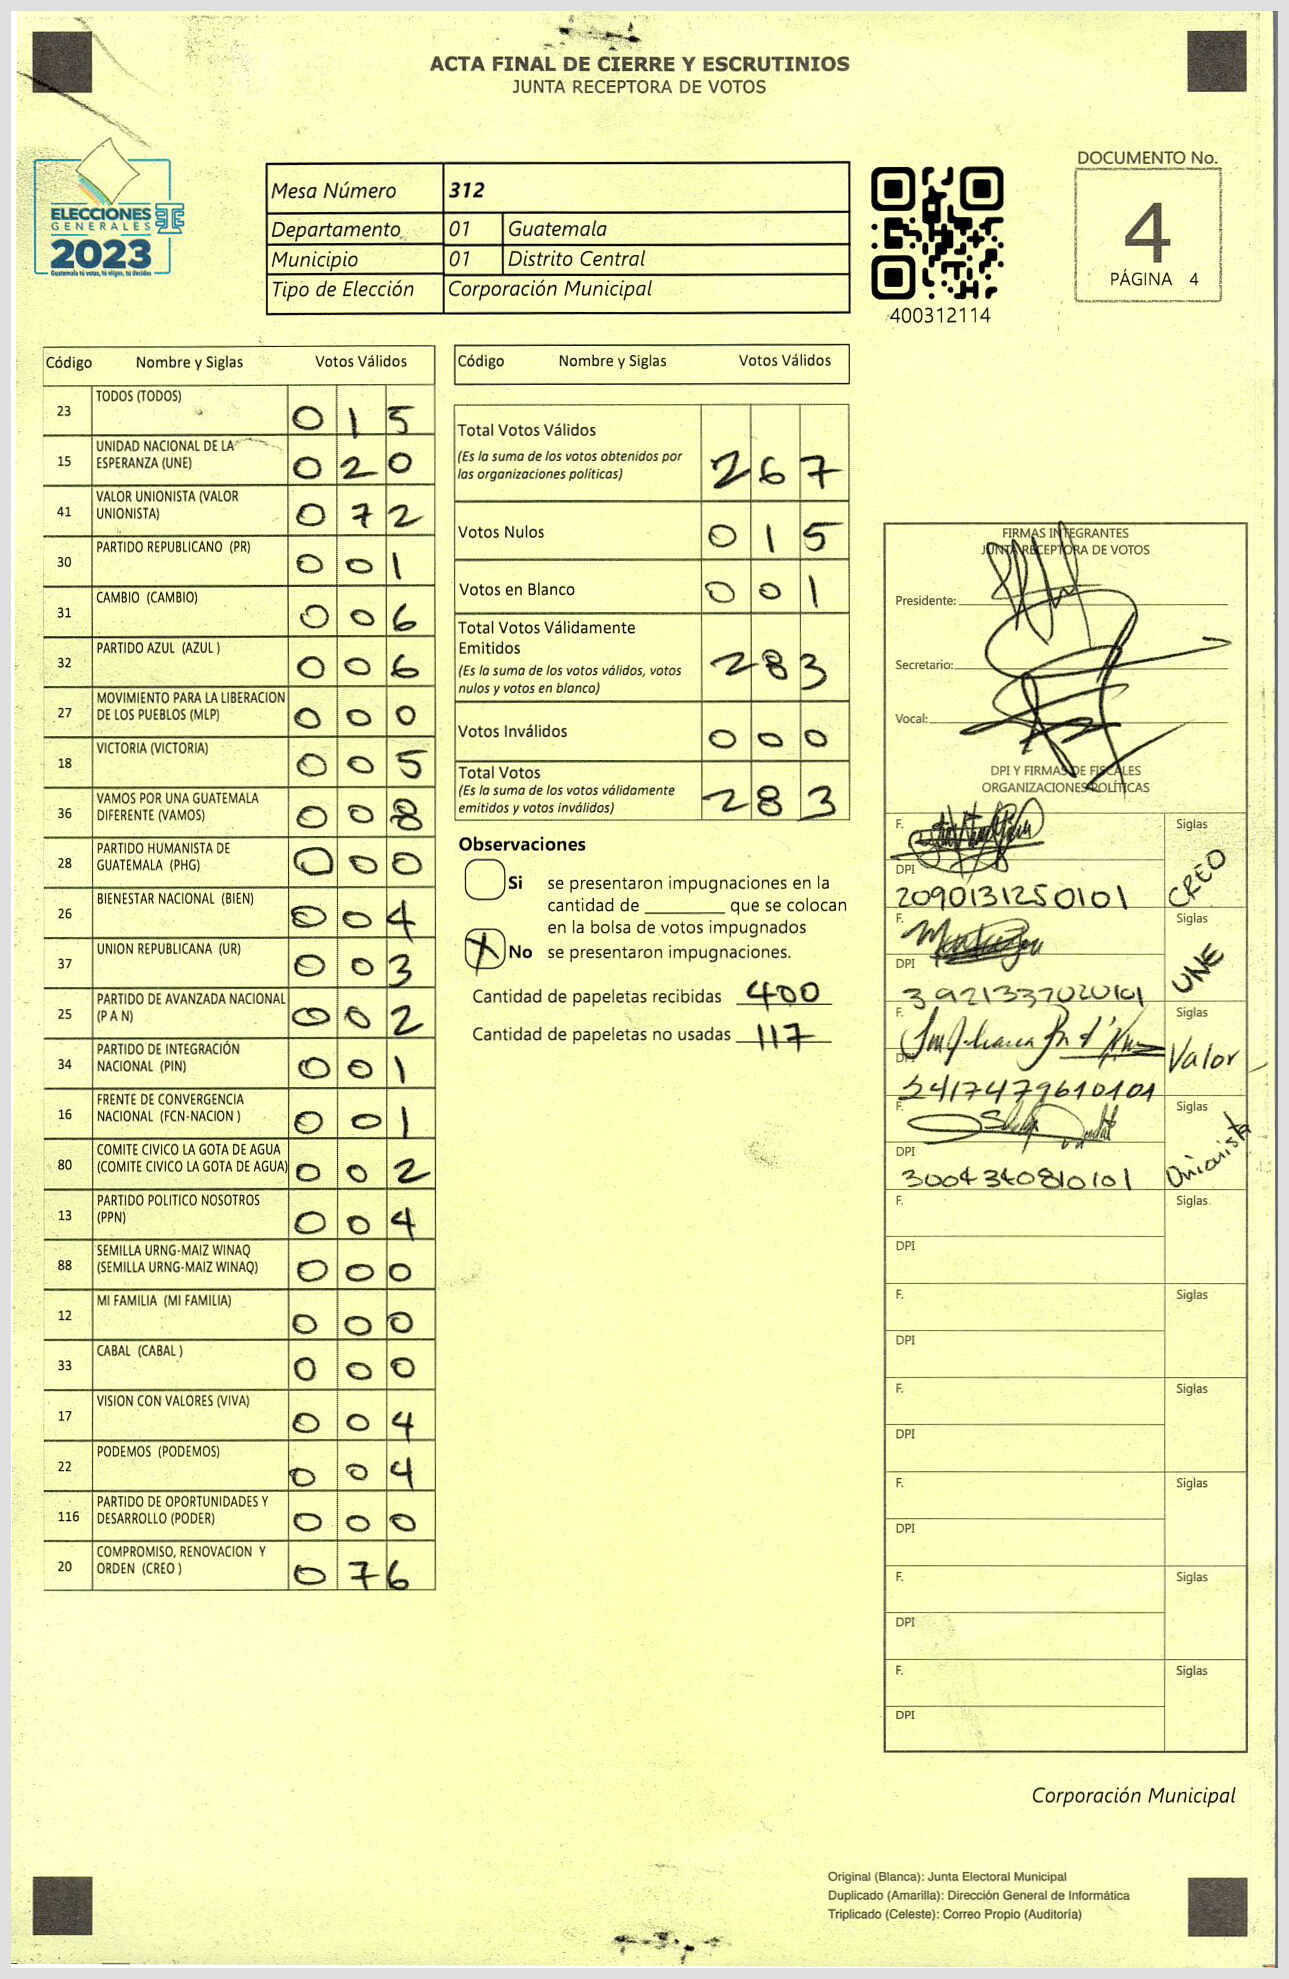 ACTA FINAL DE CIERRE Y ESCRUTINIOS
JUNTA RECEPTORA DE VOTOS
ELECCIONES
GENERALES
2023
Guatemala tú votas, tú eliges, tú decides
Mesa Número 312
Departamento 01 Guatemala
Municipio 01 Distrito Central
Tipo de Elección Corporación Municipal
400312114
DOCUMENTO No.
4
PÁGINA 4
Código Nombre y Siglas Votos Válidos
23 TODOS (TODOS) 0 1 5
15 UNIDAD NACIONAL DE LA
ESPERANZA (UNE) 0 2 0
41 VALOR UNIONISTA (VALOR
UNIONISTA) 0 7 2
30 PARTIDO REPUBLICANO (PR) 0 0 1
31 CAMBIO (CAMBIO) 0 0 6
32 PARTIDO AZUL (AZUL ) 0 0 6
27 MOVIMIENTO PARA LA LIBERACION
DE LOS PUEBLOS (MLP) 0 0 0
18 VICTORIA (VICTORIA) 0 0 5
36 VAMOS POR UNA GUATEMALA
DIFERENTE (VAMOS) 0 0 8
28 PARTIDO HUMANISTA DE
GUATEMALA (PHG) 0 0 0
26 BIENESTAR NACIONAL (BIEN) 0 0 4
37 UNION REPUBLICANA (UR) 0 0 3
25 PARTIDO DE AVANZADA NACIONAL
(P A N) 0 0 2
34 PARTIDO DE INTEGRACIÓN
NACIONAL (PIN) 0 0 1
16 FRENTE DE CONVERGENCIA
NACIONAL (FCN-NACION ) 0 0 1
80 COMITE CIVICO LA GOTA DE AGUA
(COMITE CIVICO LA GOTA DE AGUA) 0 0 2
13 PARTIDO POLITICO NOSOTROS
(PPN) 0 0 4
88 SEMILLA URNG-MAIZ WINAQ
(SEMILLA URNG-MAIZ WINAQ) 0 0 0
12 MI FAMILIA (MI FAMILIA) 0 0 0
33 CABAL (CABAL ) 0 0 0
17 VISION CON VALORES (VIVA) 0 0 4
22 PODEMOS (PODEMOS) 0 0 4
116 PARTIDO DE OPORTUNIDADES Y
DESARROLLO (PODER) 0 0 0
20 COMPROMISO, RENOVACION Y
ORDEN (CREO ) 0 7 6
Código Nombre y Siglas Votos Válidos
Total Votos Válidos
(Es la suma de los votos obtenidos por
las organizaciones políticas) 2 6 7
Votos Nulos 0 1 5
Votos en Blanco 0 0 1
Total Votos Válidamente
Emitidos
(Es la suma de los votos válidos, votos
nulos y votos en blanco) 2 8 3
Votos Inválidos 0 0 0
Total Votos
(Es la suma de los votos válidamente
emitidos y votos inválidos) 2 8 3
Observaciones
Si se presentaron impugnaciones en la
cantidad de ________ que se colocan
en la bolsa de votos impugnados
X No se presentaron impugnaciones.
Cantidad de papeletas recibidas 400
Cantidad de papeletas no usadas 117
FIRMAS INTEGRANTES
JUNTA RECEPTORA DE VOTOS
Presidente:
Secretario:
Vocal:
DPI Y FIRMAS DE FISCALES
ORGANIZACIONES POLÍTICAS
F. Siglas
DPI CREO
2090131250101
F. Siglas
DPI UNE
3921337020101
F. Siglas
DPI Valor
2417479610101
F. Siglas
DPI Unionista
3004340810101
F. Siglas
DPI
F. Siglas
DPI
F. Siglas
DPI
F. Siglas
DPI
F. Siglas
DPI
F. Siglas
DPI
Corporación Municipal
Original (Blanca): Junta Electoral Municipal
Duplicado (Amarilla): Dirección General de Informática
Triplicado (Celeste): Correo Propio (Auditoría)